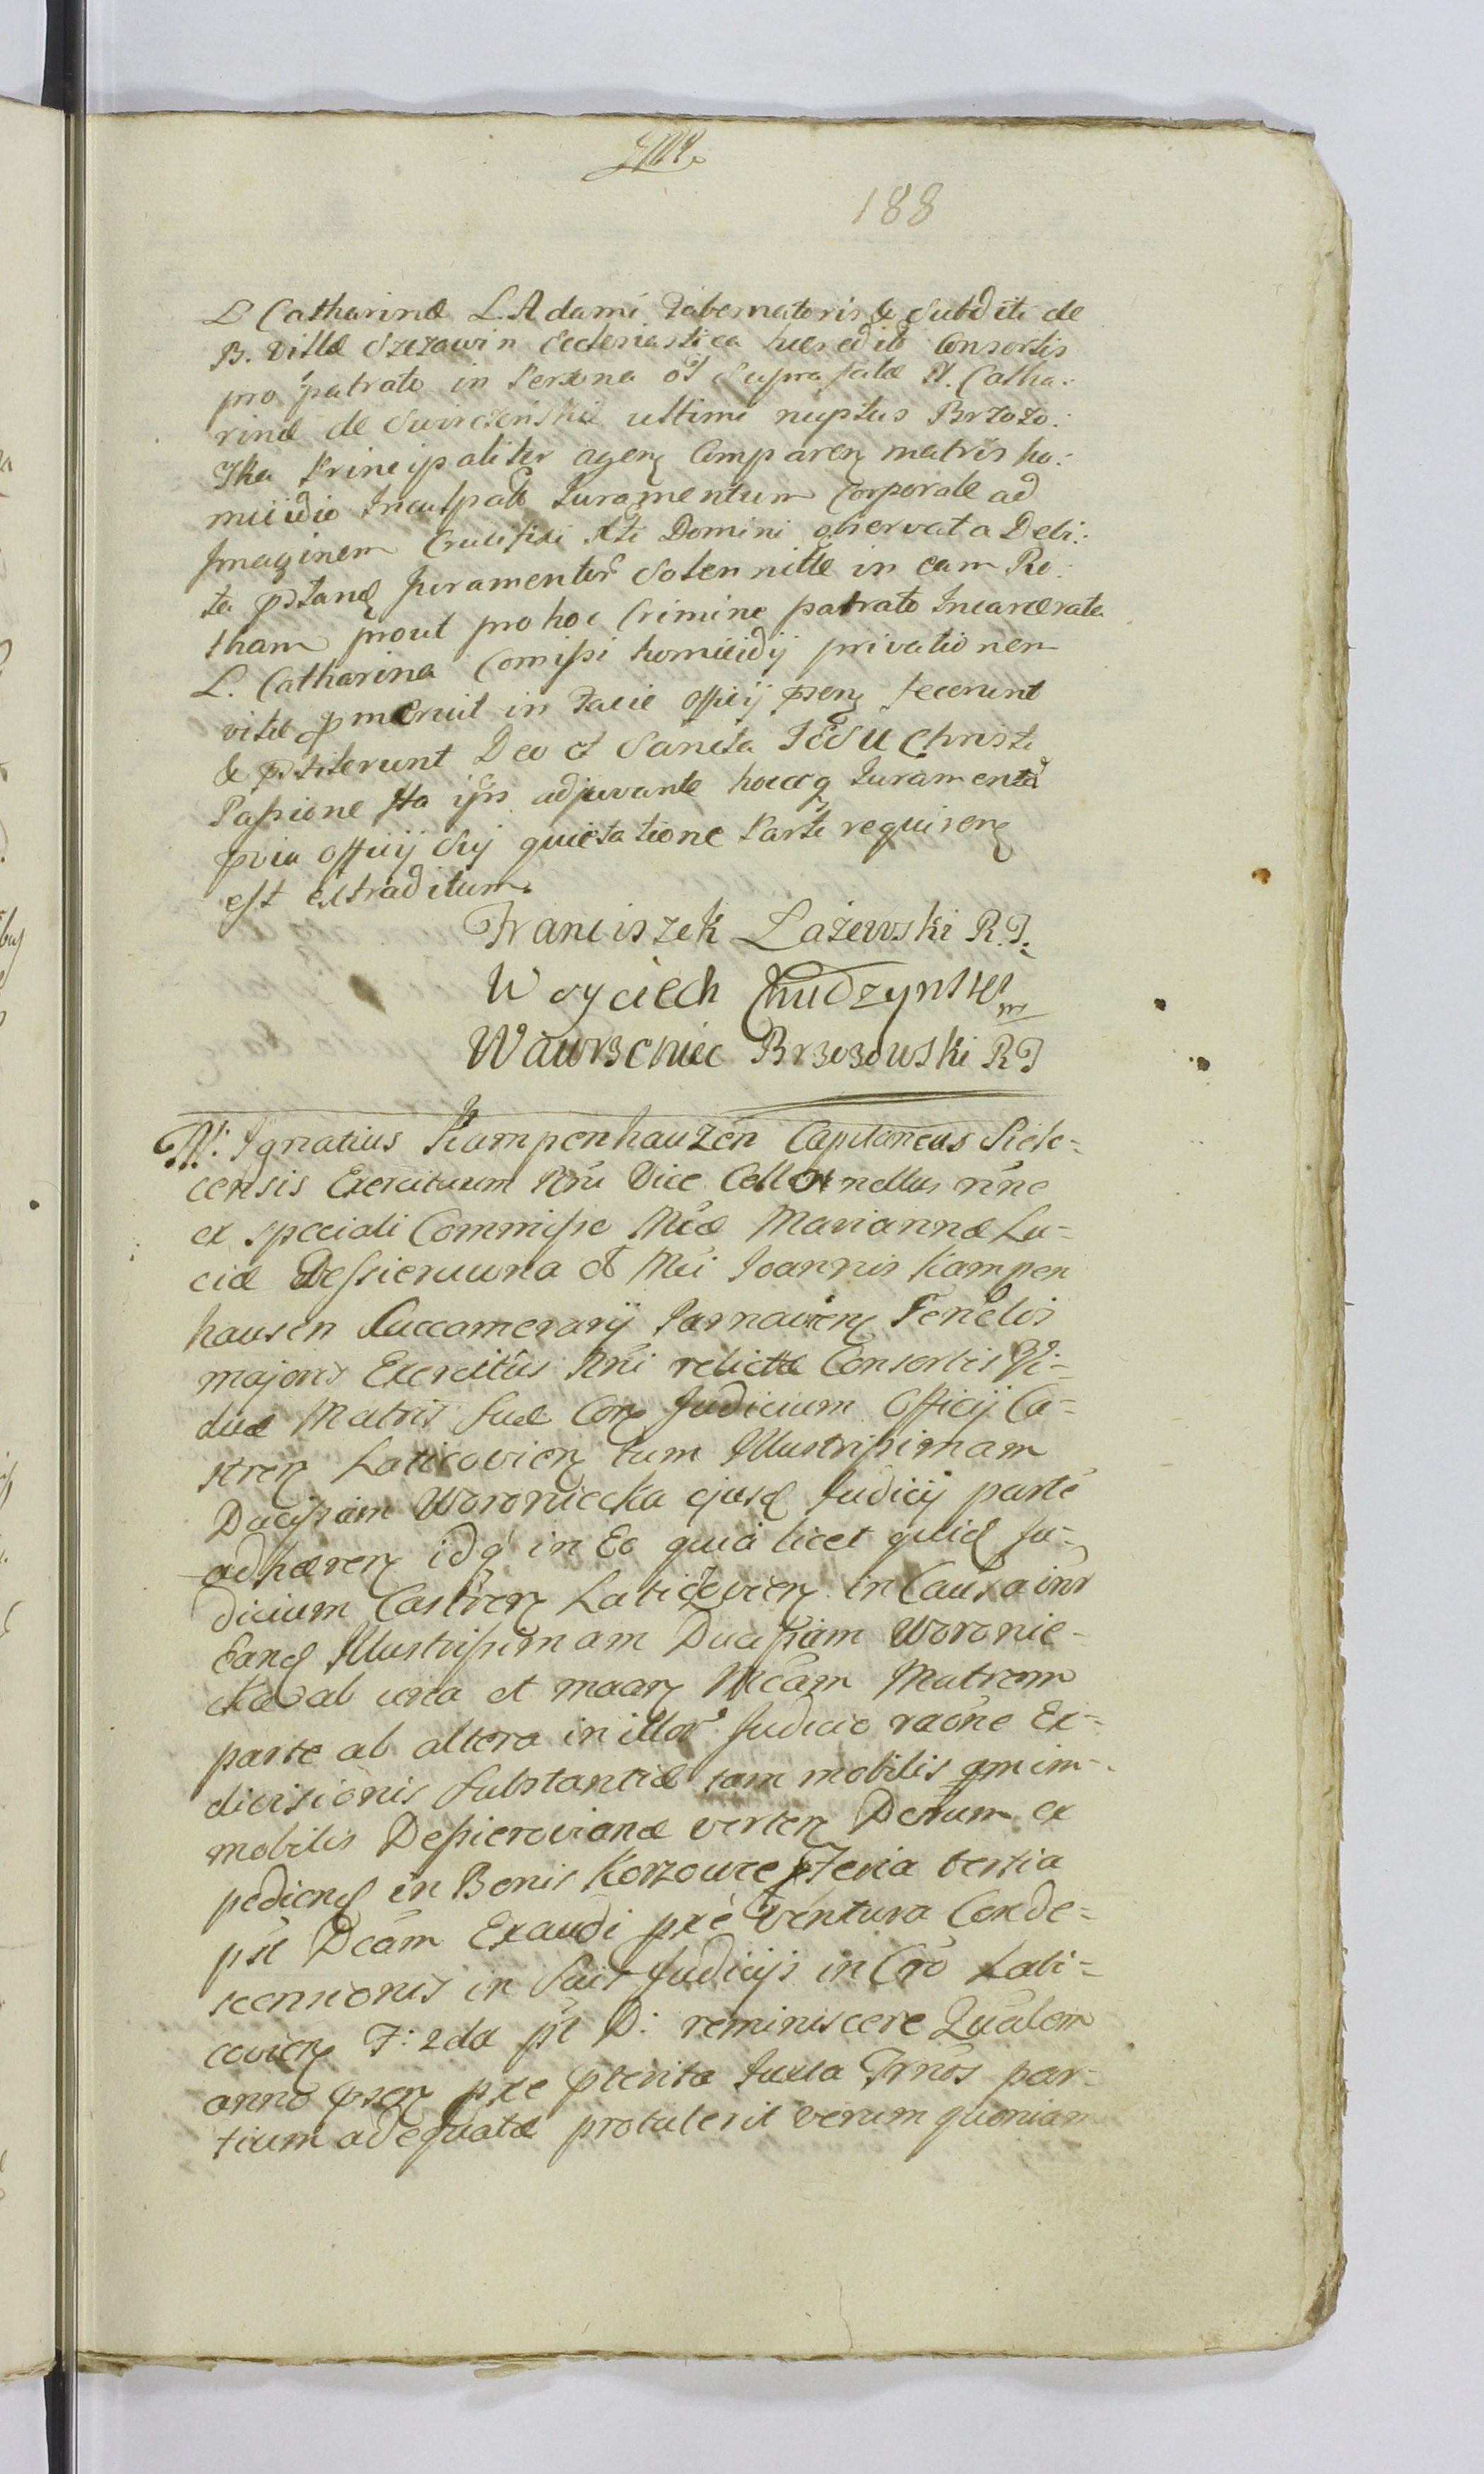 188
L Catharinæ L. Adami Tabernatoris & Subditi de
B. Villæ Szczawin Ecclesiastica hæredit Consortis
pro patrato in Persona ol Supra fatæ N. Catha:
rinæ de Swirczenskie ultimi nuptus Brzozo:
Ska Principaliter agen Comparen matris ho:
micidio Inculpatæ Juramentum Corporale ad
Imaginem Crucifixi Xti Domini observata Debi:
ta pstand Juramentor Solennitte in eam Ro:
tham prout pro hoc Crimine patrato Incarcerata
L. Catharina Comissi homicidij privationem
vitæ pmeruit in Facie Officij psen fecerunt
& pstiterunt Deo et Sancta IESU Christi
Passione Ita ijs adjuvante hocceq Juramentū
pvia officij Sui quietatione Parti requiren
est extraditum.
Franciszek Lażewski R.T.
Woyciech Chudzynski
Wawrzeniec Brzozowski RT
M: Ignatius Kampenhauzen Capitaneus Siele-
censis Exercituum Rni Vice Collonellus nine
ex speciali Commisse Mcæ Mariannæ Lu-
ciæ Dessieruwna et Mci Joannis Kampen
hausen Succamerarij Parnavien Genelis
majoris Exercitûs Rni relictæ Consortis Vi-
duæ Matris suæ Con Judicium Officij Ca-
stren Laticovien tum Illustrissimam
Ducissam Woroniecka ejusd Judicij parte
adhæren idq in Eo quia licet quid Ju-
dicium Castren Laticovien in Causa intr
Eand Illustrissimam Ducissam Woronie-
cka ab una et maan Mcam Matrem
parte ab altera in illor Judicio raone Ex-
divisionis Substantiæ tam mobilis qm im-
mobilis Dessierovianæ verten Derum ex
pediend in Bonis Korzowce Feria tertia
pst Dcam Exaudi pxe Ventura Conde-
scensionis in Suis Judicijs in Cro Lati-
covien F: 2da pst D: reminiscere Qualem
anno psen pxe pterita Juxta Trnos par-
tium adequatæ protulerit verum quoniam